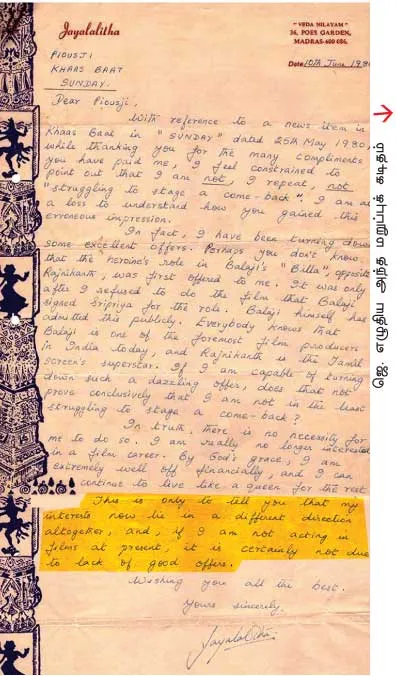 Jayalalitha
"VEDA NILAYAM"
36, POES GARDEN,
MADRAS-600 086.
Date 10th June 1980
PIOUSJI
KHAAS BAAT
SUNDAY.
Dear Piousji,
With reference to a news item in
Khaas Baat in "SUNDAY" dated 25th May 1980,
while thanking you for the many compliments
you have paid me, I feel constrained to
point out that I am not, I repeat, not
"struggling to stage a come-back". I am at
a loss to understand how you gained this
erroneous impression.
In fact, I have been turning down
some excellent offers. Perhaps you don't know
that the heroine's role in Balaji's "Billa", opposite
Rajnikanth, was first offered to me. It was only
after I refused to do the film that Balaji
signed Sripriya for the role. Balaji himself has
admitted this publicly. Everybody knows that
Balaji is one of the foremost film producers
in India today, and Rajnikanth is the Tamil
Screen's superstar. If I am capable of turning
down such a dazzling offer, does that not
prove conclusively that I am not in the least
struggling to stage a come-back?
In truth, there is no necessity for
me to do so. I am really no longer interested
in a film career. By God's grace, I am
extremely well off financially, and I can
continue to live like a queen for the rest
This is only to tell you that my
interests now lie in a different direction
altogether, and, if I am not acting in
films at present, it is certainly not due
to lack of good offers.
Wishing you all the best.
Yours sincerely,
Jayalalitha
ஜெ. எழுதிய அந்த மறுப்புக் கடிதம்